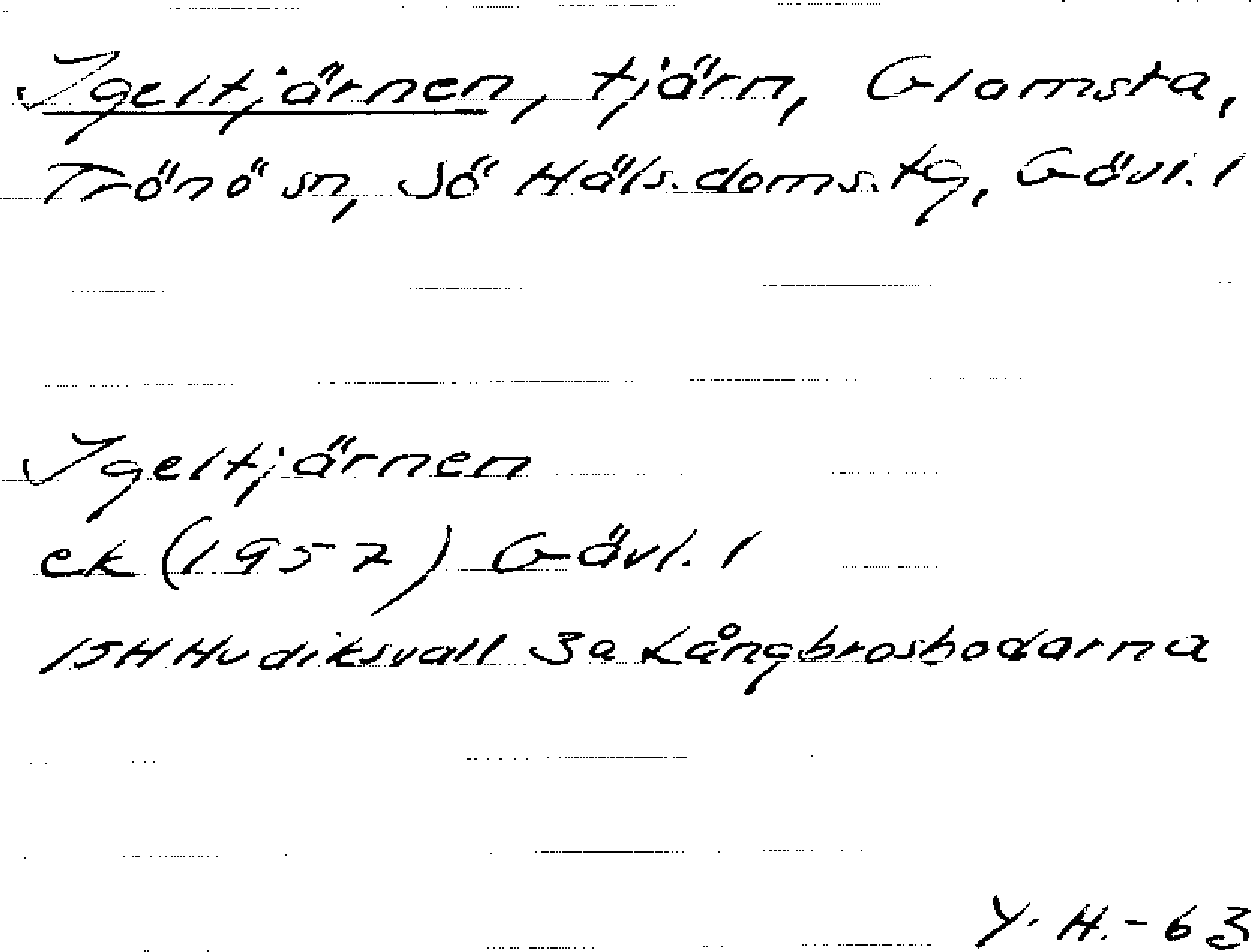 Igeltjärnen, tjärn, Glamsta,
Trönö sn, Sö Häls. doms. tg, Gävl. l
Igeltjärnen
ek (1957) Gävl. l
15H Hudiksvall 3a Långbrosbodarna
Y. H. - 63